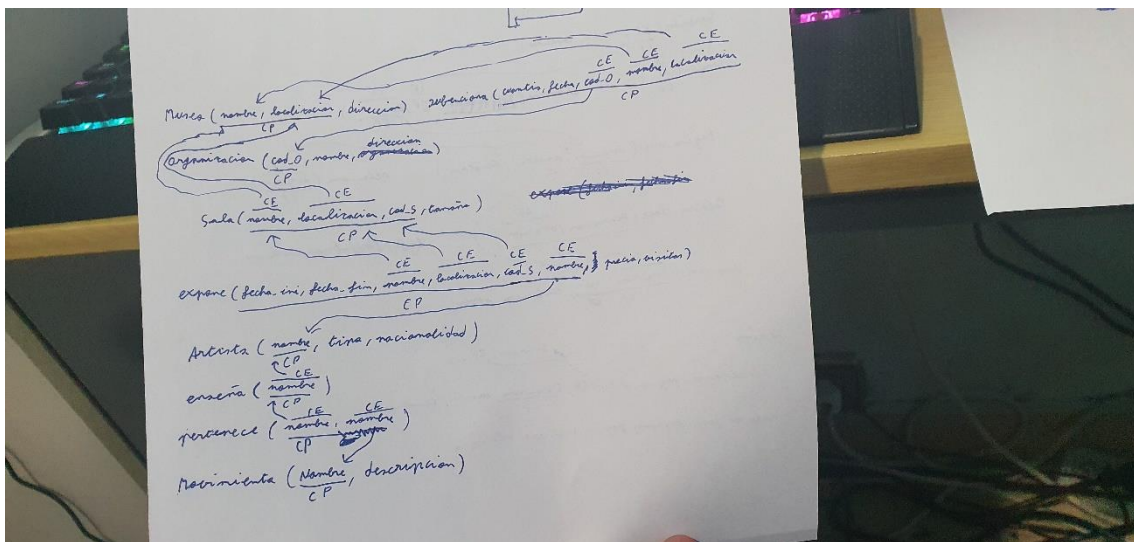 CE
CE CE
Museo (nombre, localizacion, direccion) subenciona (cuantia, fecha, cod_O, nombre, localizacion
CP CP
direccion
Organizacion (cod_O, nombre, )
CP
CE CE
Sala (nombre, localizacion, cod_S, tamaño)
CP
CE CE CE CE
expone (fecha_ini, fecha_fin, nombre, localizacion, cod_S, nombre, precio, visitas)
CP
Artista (nombre, tipo, nacionalidad)
CP
CE
enseña (nombre)
CP
CE CE
pertenece (nombre, nombre)
CP
Movimiento (Nombre, descripcion)
CP